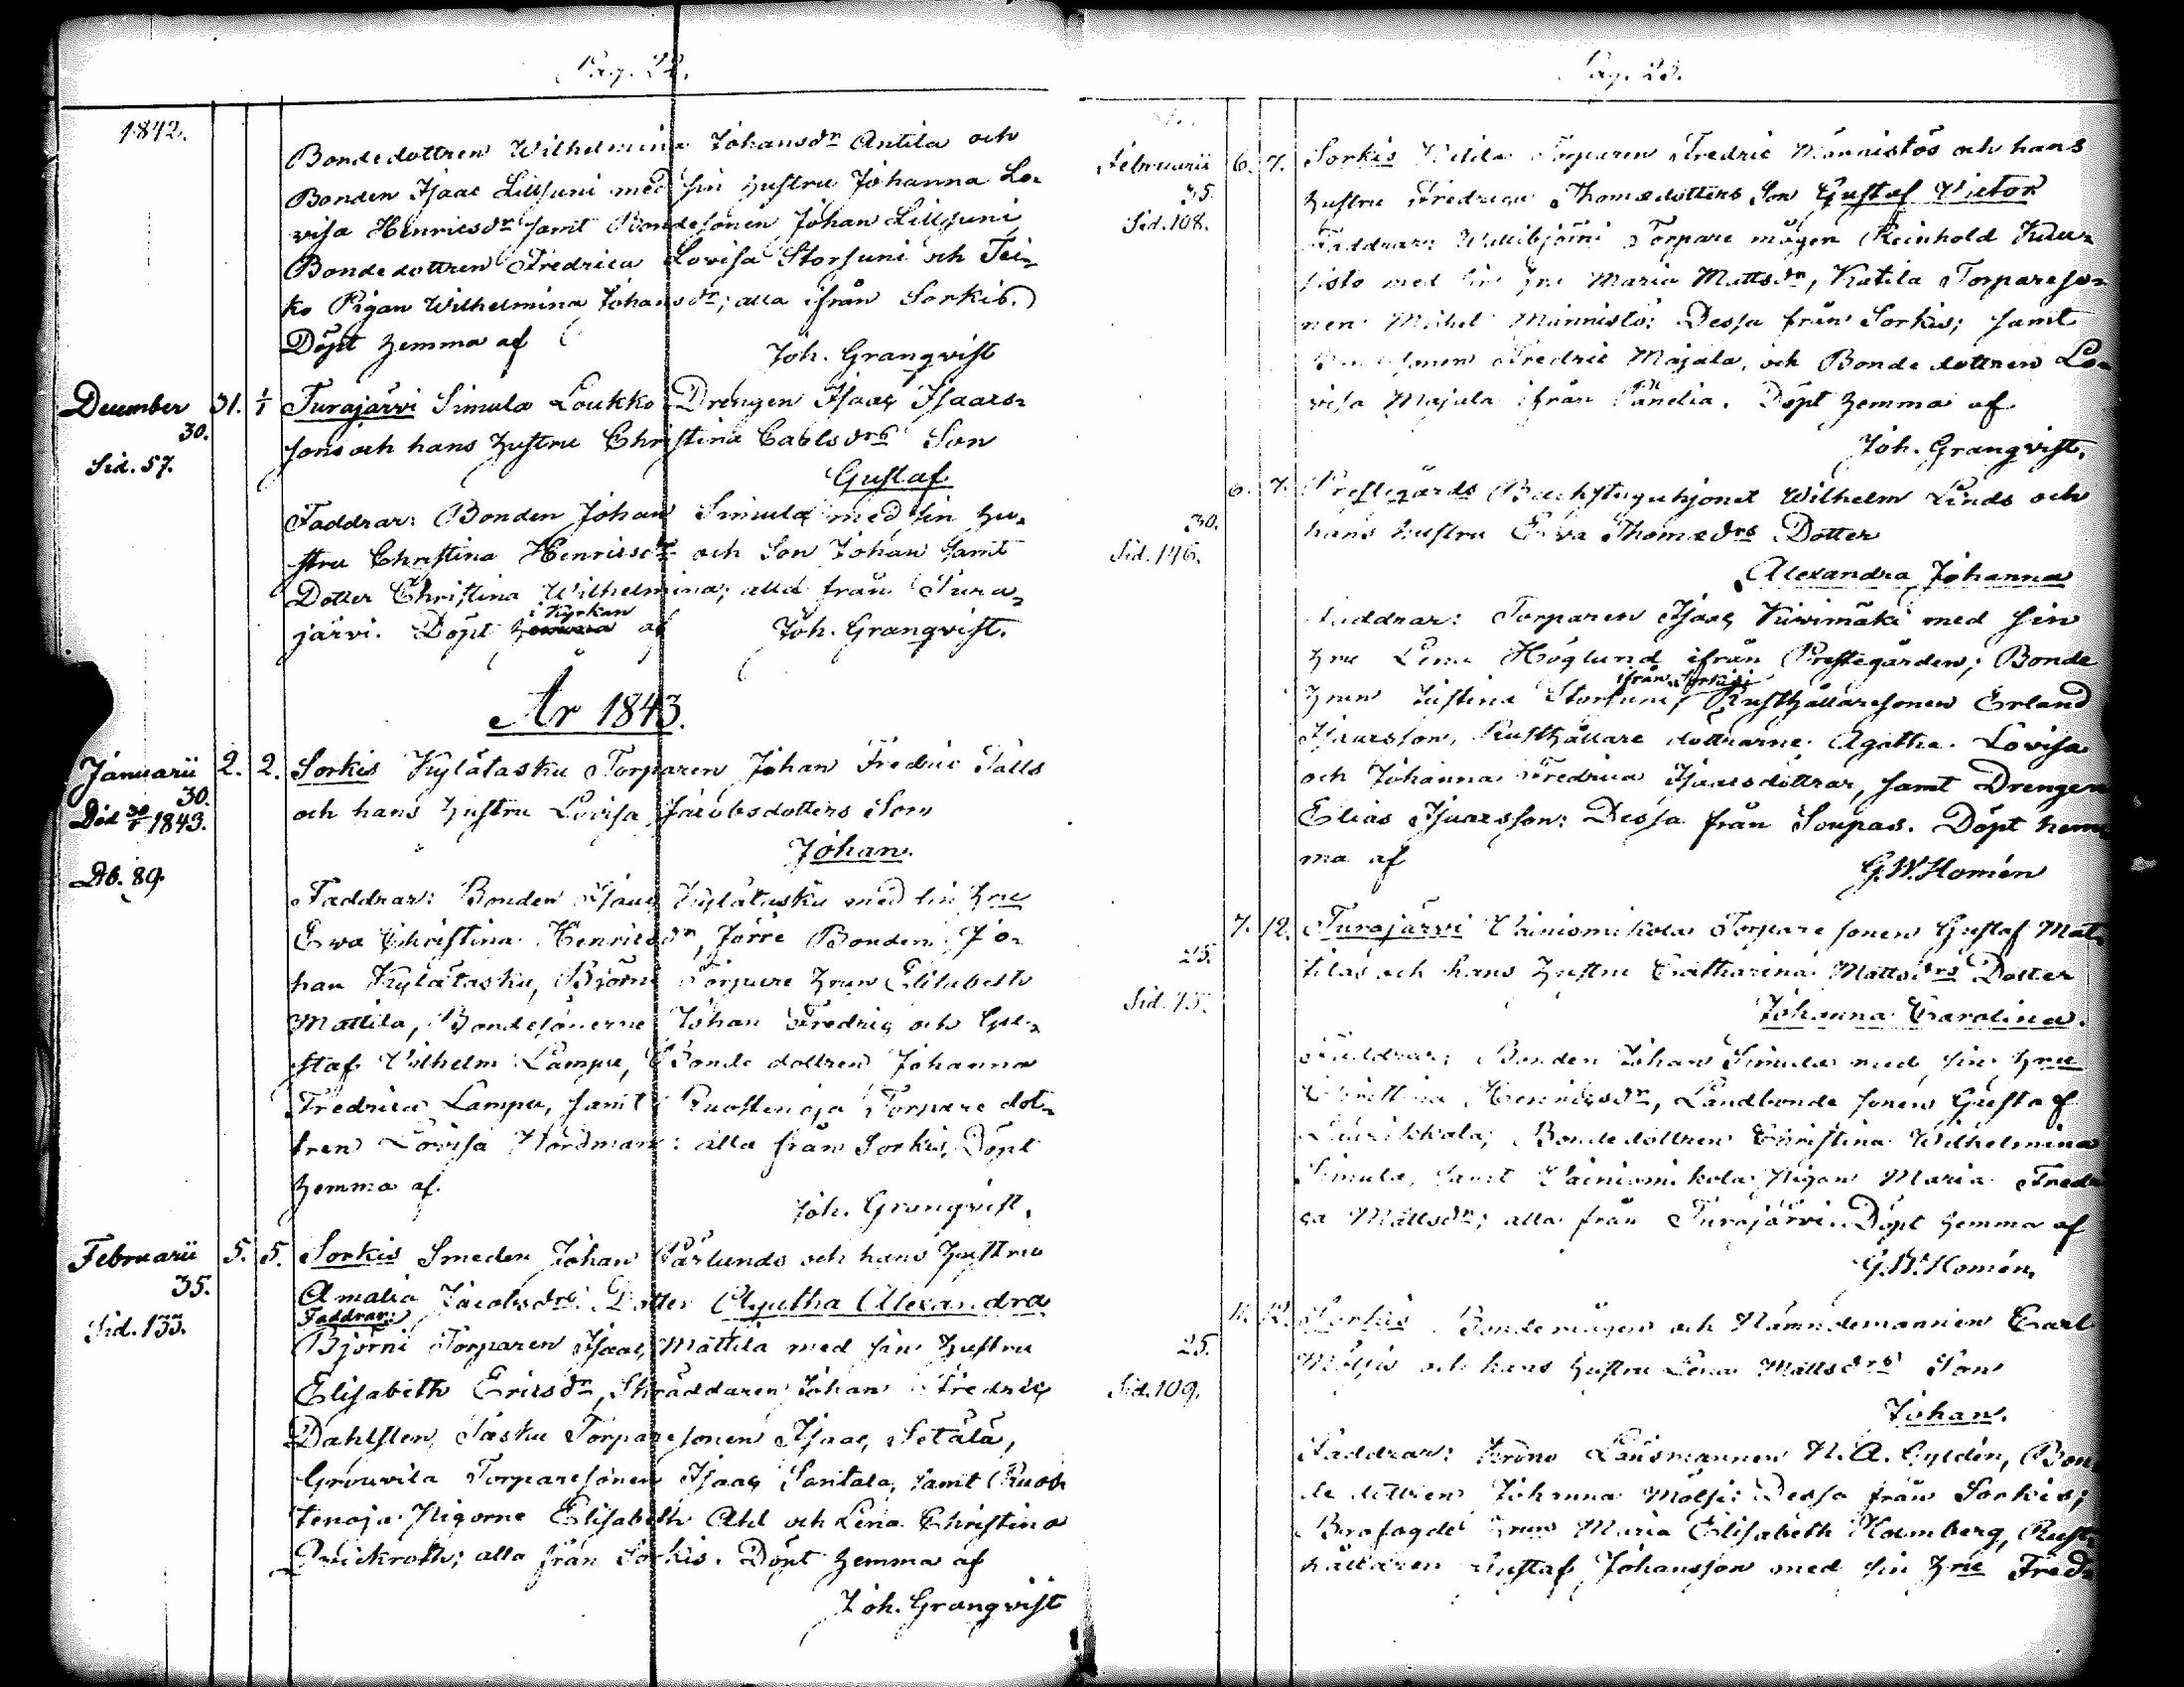 Pag. 22.
1842.
Bondedottren Wilhelmina Johansdr Antila och
Bonden Isaac Lillsuni med sin hustru Johanna Lo-
visa Henricsdr samt Bondesonen Johan Lillsuni,
Bondedottren Fredrica Lovisa Storsuni och Tei-
ko Pigan Wilhelmina Johansdr; alla ifrån Sorkis.
Döpt hemma af
Joh. Granqvist
December 31. 1/1 Turajärvi Simula Loukko Drengen Isaac Isaacs-
30.
sons och hans hustru Christina Carlsdrs Son
Sid. 57.
Gustaf
Faddrar: Bonden Johan Simula med sin hu-
stru Christina Henricsdr och Son Johan samt
Dotter Christina Wilhelmina; alla från Tura-
i Kyrkan
järvi. Döpt hemma af Joh. Granqvist.
År 1843.
Januarii 2. 2. Sorkis Kylätasku Torparen Johan Fredric Falls
30.
Död 30/1 1843.
och hans hustru Lovisa Jacobsdotters Son
Johan.
Db. 89.
Faddrar: Bonden Isaac Kylätasku med sin hru
Ewa Christina Henricsdr, Jörre Bonden Jo-
han Kylätasku, Björni Torpare hrun Elisabeth
Mattila, Bondesönerne Johan Fredric och Gu-
staf Wilhelm Lampu, Bonde dottren Johanna
Fredrica Lampu, samt Ruostenoja Torpare dot-
tren Lovisa Nordman: alla från Sorkis, Döpt
hemma af.
Joh. Granqvist.
Februarii 5. 5. Sorkis Smeden Johan Färlunds och hans hustru
35.
Amalia Jacobsdrs Dotter Agatha Alexandra
Sid. 133.
Faddrar:
Björni Torparen Isaac Mattila med sin hustru
Elisabeth Ericsdr, Skräddaren Johan Fredric
Dahlsten, Tasku Torparesonen Isaac Setälä,
Grouvila Torparesonen Isaac Santala, samt Ruos-
tenoja Pigorne Elisabeth Ahl och Lena Christina
Qvickroth; alla från Sorkis. Döpt hemma af
Joh. Granqvist
Pag. 23.
Februarii 6. 7. Sorkis Torparen Fredric Männistös och hans
35.
hustru Fredrica Thomædotters Son Gustaf Victor
Sid. 108.
Faddrar: Torpare mågen Reinhold
med sin hru Maria Mattsdr, Katila Torpareso-
nen Michel Männistö: Dessa från Sorkis; samt
Fredric Majala, och Bonde dottren Lo-
visa Majala ifrån Panelia. Döpt hemma af
Joh. Granqvist.
6. 7. Prestegårds Backstuguhjonet Wilhelm Linds och
30.
hans hustru Eva Thomædrs Dotter
Sid. 146.
Alexandra Johanna
Faddrar: Torparen Isaac Kivimäki med sin
hru Lena Höglund ifrån Prestegården; Bonde
ifrån Sorkis;
hrun Justina Storsuni Rusthållaresonen Erland
Isaacsson, Rusthållare döttrarne Agatha Lovisa
och Johanna Fredrica Isaacsdöttrar, samt Drengen
Elias Isaacsson: Dessa från Soupas. Döpt hem-
ma af
G. W. Homén
7. 12. Turajärvi Vainiomikola Torpare sonen Gustaf Mat-
25.
tilas och hans hustru Catharina Mattsdrs Dotter
Sid. 75.
Johanna Carolina.
Faddrar: Bonden Johan Simula med sin hru
Christina Henricsdr, Landbonde sonen Gustaf
Bondedottren Christina Wilhelmina
Simula, samt Vainiomikola Pigan Maria Fredri
ca Mattsdr; alla från Turajärvi. Döpt hemma af
G. W. Homén.
12. Sorkis Bondemågen och Nämndemannen Carl
25.
Mölsis och hans hustru Lena Mattsdrs Son
Sid. 109.
Johan.
Faddrar: Krono Länsmannen N. A. Gyldén, Bon-
de dottren Johanna Mölsi: Dessa från Sorkis;
Brofogde hrun Maria Elisabeth Holmberg, Rust-
hållaren Gustaf Johansson med sin hru Fred-